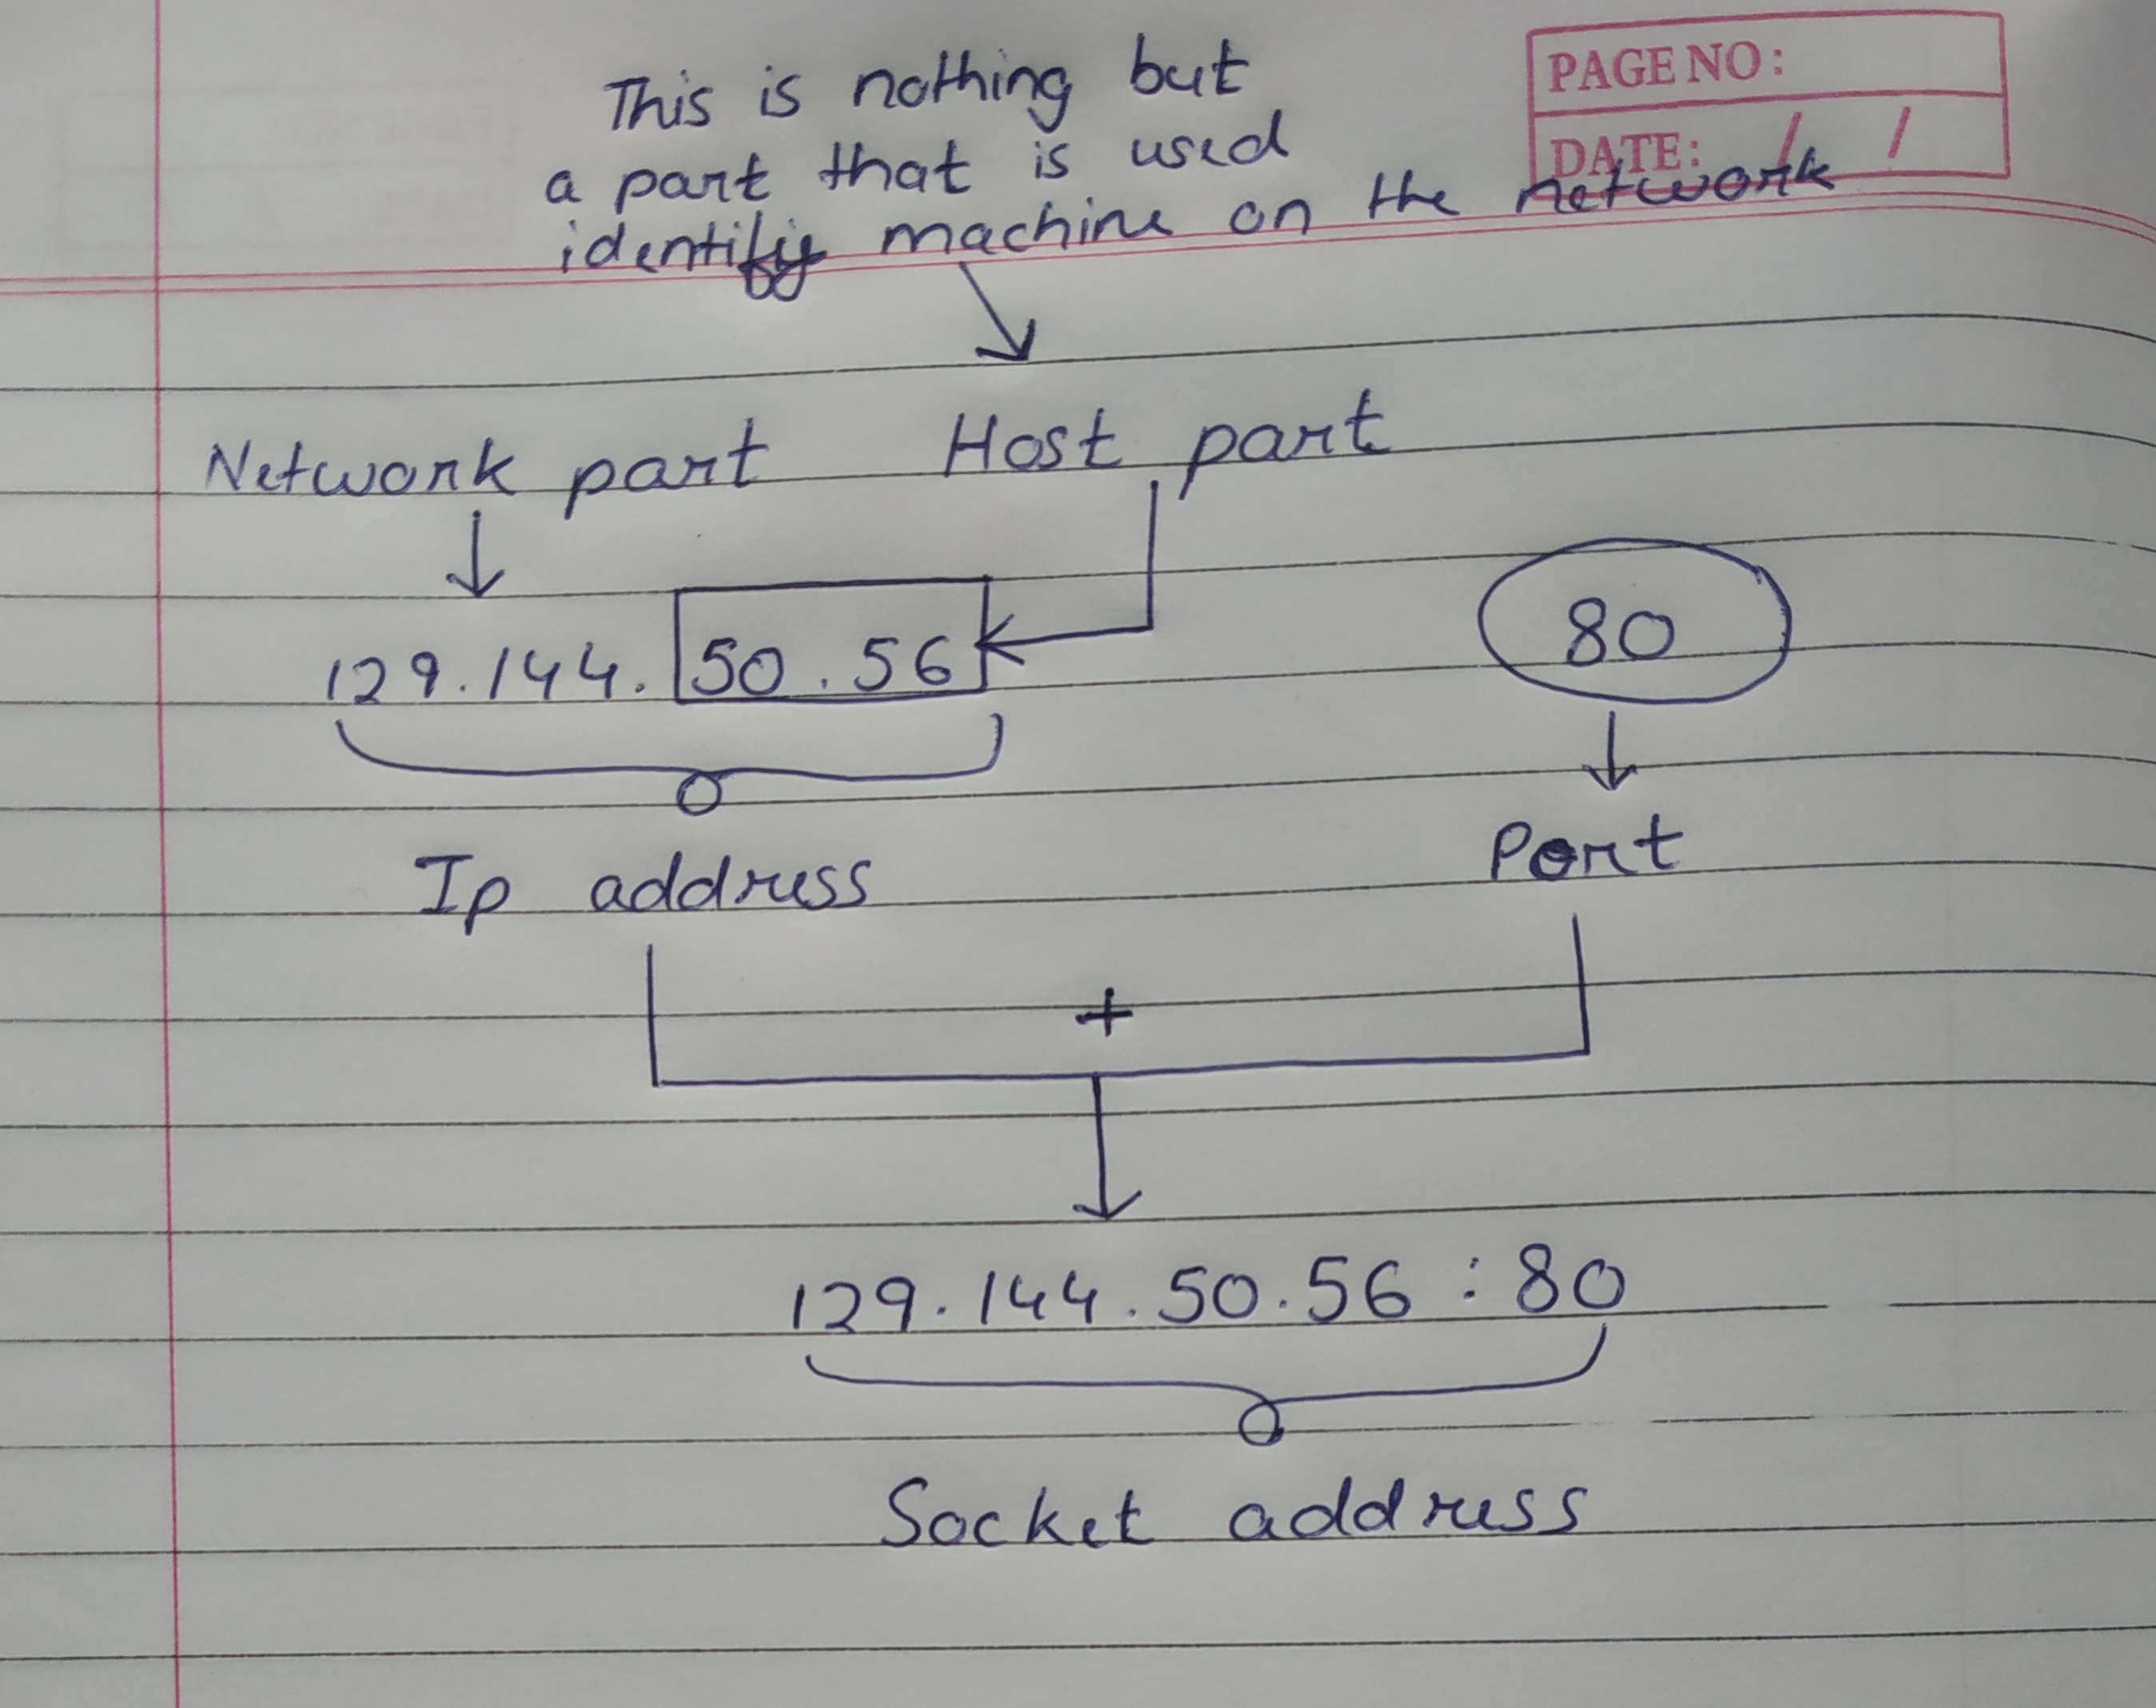 PAGE NO:
DATE: / /
This is nothing but
a part that is used
identify machine on the network
Network part Host part
129.144. 50.56
80
Ip address
Port
+
129.144.50.56 : 80
Socket address